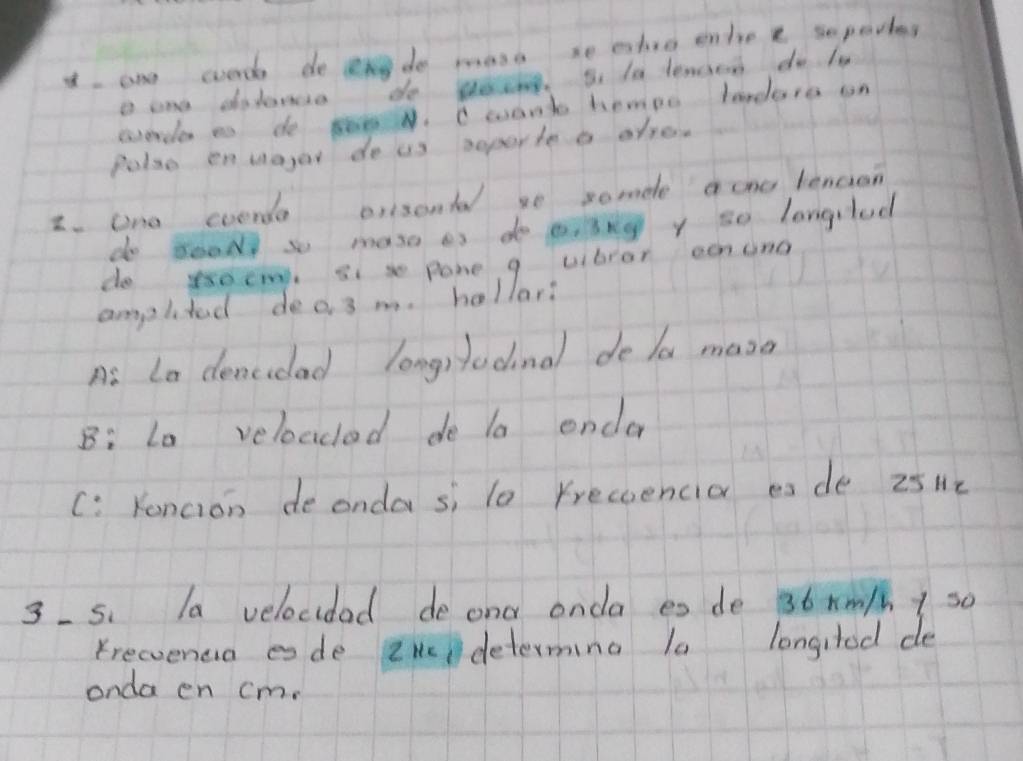 1- una cuerda de 2kg de masa se estira entre 2 soportes
a una distancia de cm. si la tencion de la
cuerda es de N. c cuanto tiempo tardara un
Pulso en viajar de us soporte a otro.
2- Una cuerda orisontal se somete a una tencion
de 500N, so masa es de 0,3kg y so longitud
de 150 cm. si se pone a vibrar con una
amplitud de 0,3 m. hallar:
A: La dencidad longitudinal de la masa
B: La velocidad de la onda
C: Foncion de onda si la frecuencia es de 25 Hz
3- Si la velocidad de una onda es de 36 km/h y so
frecuencia es de 2 Hz, determina la longitod de
onda en cm.